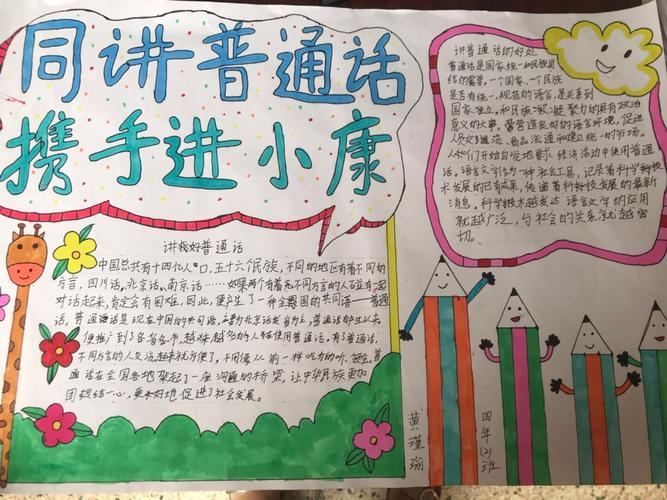 同讲普通话
携手进小康
讲普通话的好处
普通话是国家统一和民族团
结的需要。一个国家、一个民族
是否有统一、规范的语言,是关系到
国家独立。和民族凝聚力的具有政治
意义的大事。营造良好的语言环境,促进
人员交流、商品流通和建立统一的市场。
人们开始自觉地 经济活动中使用普通
话。语言文字作为一种社会工具,记录着科学科技
术发展的已有成果,传递着科科技发展的最新
消息。科学技术越发达 语言文字的应用
就越广泛,与社会的关系就越密
切。
讲好普通话
中国总共有十四亿人口,五十六个民族,不同的地区有着不同的
方言,四川话,北京话,南京话……如果两个有着不同方言的人在一起
对话起来,肯定会有困难,因此,便产生了一种全国的共同语——普通
话。普通话是现在中国的共同语,主要为北京话发音为主,普通话即生以来
便推广到了各省各市,越来越多的人能使用普通话。有了普通话,
不同方言的人交流起来就方便了,不同像从前一样吃力的听。普
通话在全国各地架起了一座沟通的桥梁,让中华民族更加
团结一心,更好地促进了社会发展。
黄瑾瑜
四年(2)班